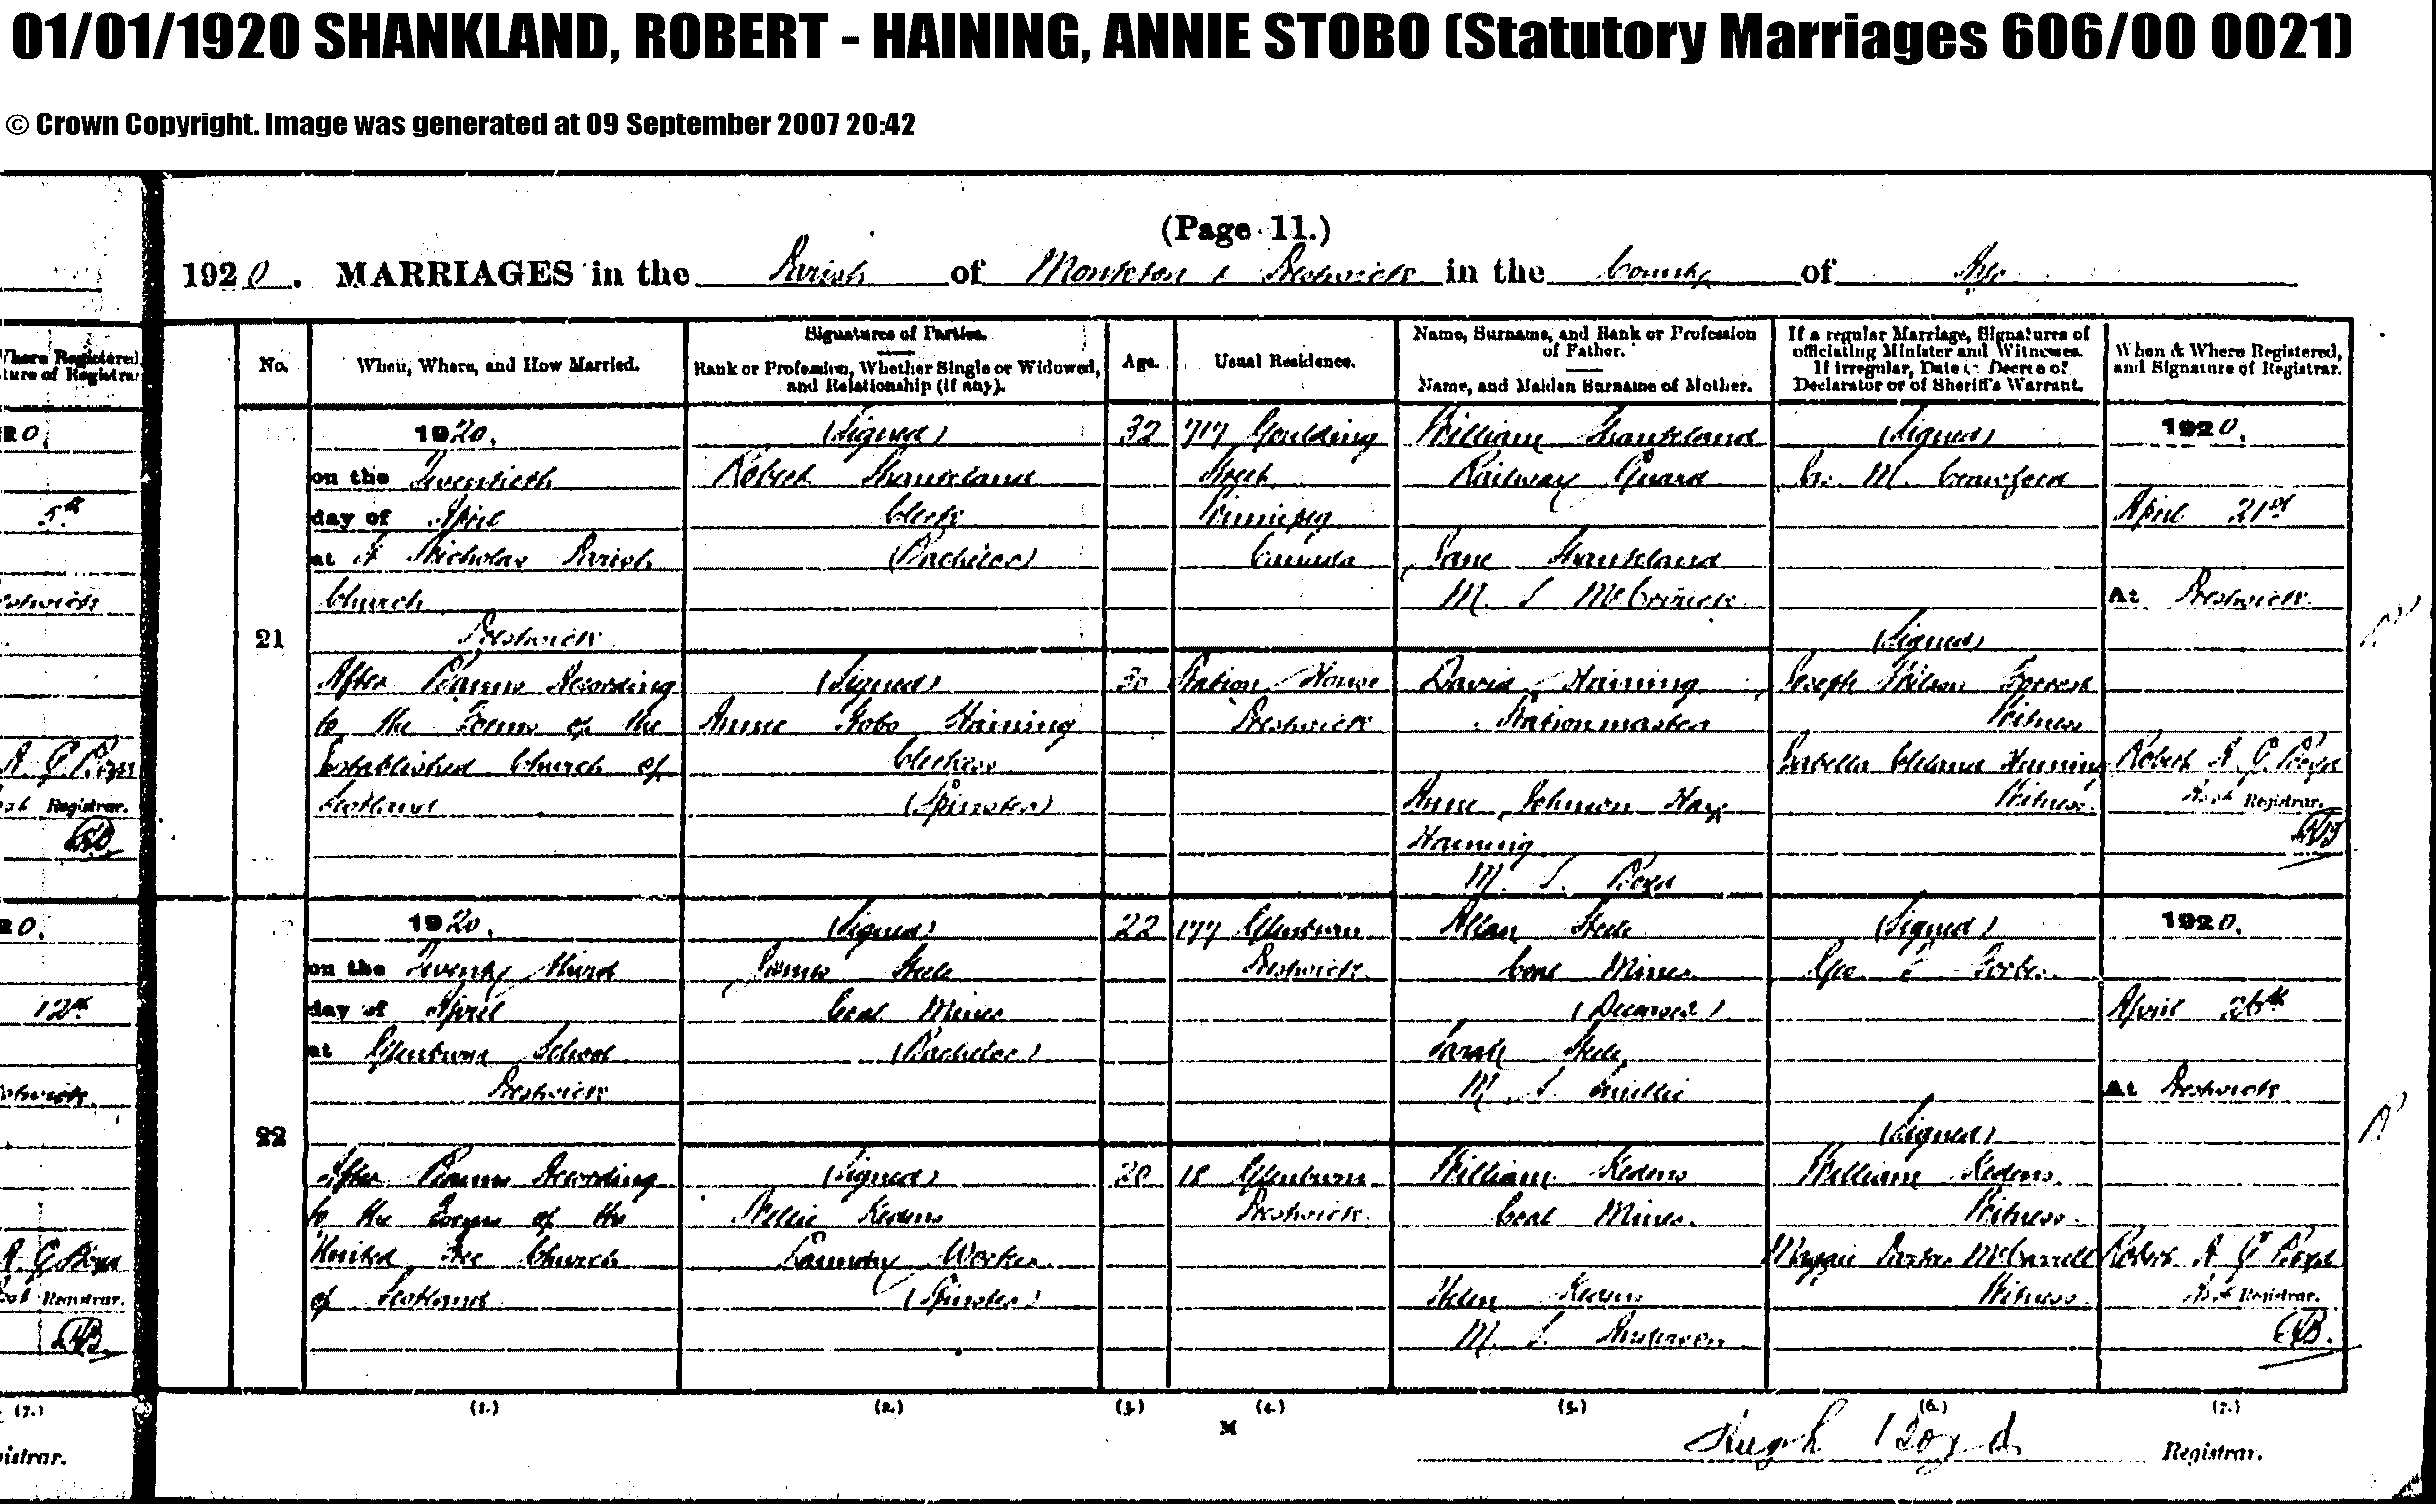 01/01/1920 SHANKLAND, ROBERT - HAINING, ANNIE STOBO (Statutory Marriages 606/00 0021)
© Crown Copyright. Image was generated at 09 September 2007 20:42
(Page 11.)
1920. MARRIAGES in the Parish of Monkton & Prestwick in the County of Ayr
Where Registered,
ture of Registrar
20.
5th
estwick
A G Boyd
Registrar.
20.
12th
estwick
A G Boyd
Registrar.
(7.)
istrar.
No.
When, Where, and How Married.
Signatures of Parties.
Rank or Profession, Whether Single or Widowed,
and Relationship (if any).
Age.
Usual Residence.
Name, Surname, and Rank or Profession
of Father.
Name, and Maiden Surname of Mother.
If a regular Marriage, Signatures of
officiating Minister and Witnesses.
If irregular, Date of Decree of
Declarator or of Sheriff's Warrant.
When & Where Registered,
and Signature of Registrar.
21
1920.
on the Twentieth
day of April
at St Nicholas Parish
Church
Prestwick
After Banns According
to the Forms of the
Established Church of
Scotland
(Signed)
Robert Shankland
Clerk
(Bachelor)
(Signed)
Annie Stobo Haining
Clerkess
(Spinster)
32
30
717 Goulding
Street
Winnipeg
Canada
Station House
Prestwick
William Shankland
Railway Guard
Jane Shankland
M. S. McCormick
David Haining
Stationmaster
Anne Johnson Hay
Haining
M. S. Boyd
(Signed)
M. Crawford
(Signed)
Joseph Wilson Forrest
Witness
Isabella Cleland Haining
Witness.
1920.
April 21st
At Prestwick
Robert A. G. Boyd
Asst Registrar.
22
1920.
on the Twenty third
day of April
at Glenburn School
Prestwick
After Banns According
to the Forms of the
United Free Church
of Scotland
(Signed)
James Steele
Coal Miner
(Bachelor)
(Signed)
Nellie Kedens
Laundry Worker
(Spinster)
22
20
177 Glenburn
Prestwick.
18 Glenburn
Prestwick.
Allan Steele
Coal Miner
(Deceased)
Sarah Steele
M. S. Smillie
William Kedens
Coal Miner.
Helen Kedens
M. S. Anderson
(Signed)
Geo Forbes
(Signed)
William Kedens.
Witness.
Maggie Parker McCarrell
Witness.
1920.
April 26th
At Prestwick
Robert A G Boyd
Asst Registrar.
(1.) (2.) (3.) (4.) (5.) (6.) (7.)
M
Hugh Boyd Registrar.